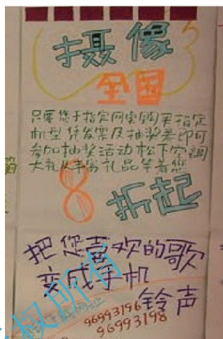 摄像
全国
只要您于指定网点购买指定
机型凭发票及抽奖卷即可
参加抽奖活动松下空调
大礼及丰富礼品等着您
8折起
把您喜欢的歌
变成手机
铃声
96993196
96993198